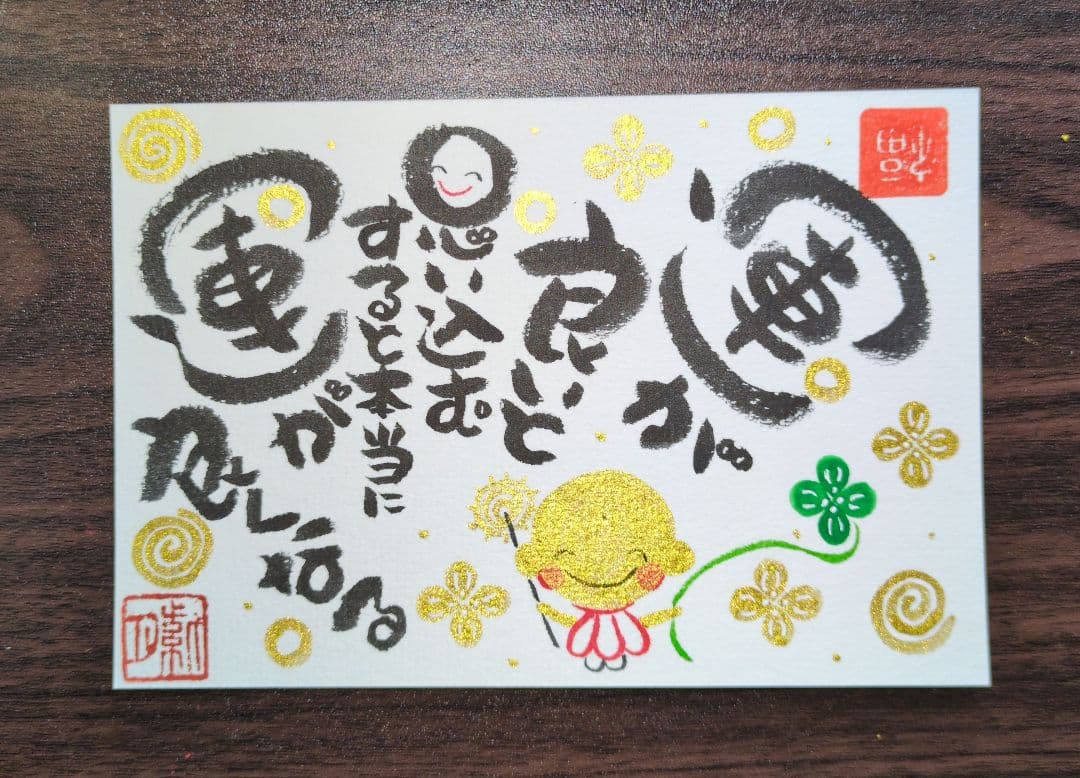 運が
良いと
思い込む
すると本当に
運が
良くなる
福